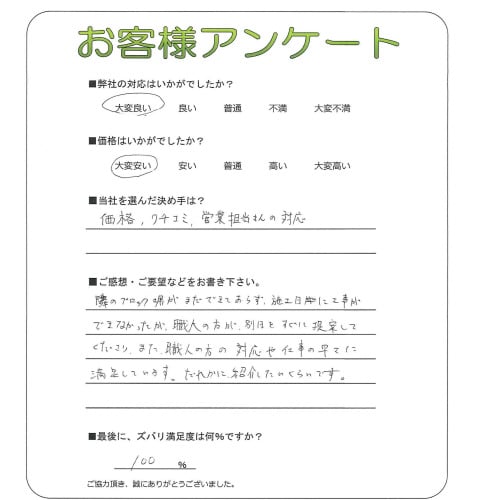 お客様アンケート
■弊社の対応はいかがでしたか？
大変良い 良い 普通 不満 大変不満
■価格はいかがでしたか？
大変安い 安い 普通 高い 大変高い
■当社を選んだ決め手は？
価格，クチコミ，営業担当さんの対応
■ご感想・ご要望などをお書き下さい。
隣のブロック塀がまだできておらず、施工日時に工事が
できなかったが、職人の方が、別日をすぐに提案して
くださり、また、職人の方の対応や仕事の早さに
満足しています。だれかに紹介したいくらいです。
■最後に、ズバリ満足度は何%ですか？
100 %
ご協力頂き、誠にありがとうございました。